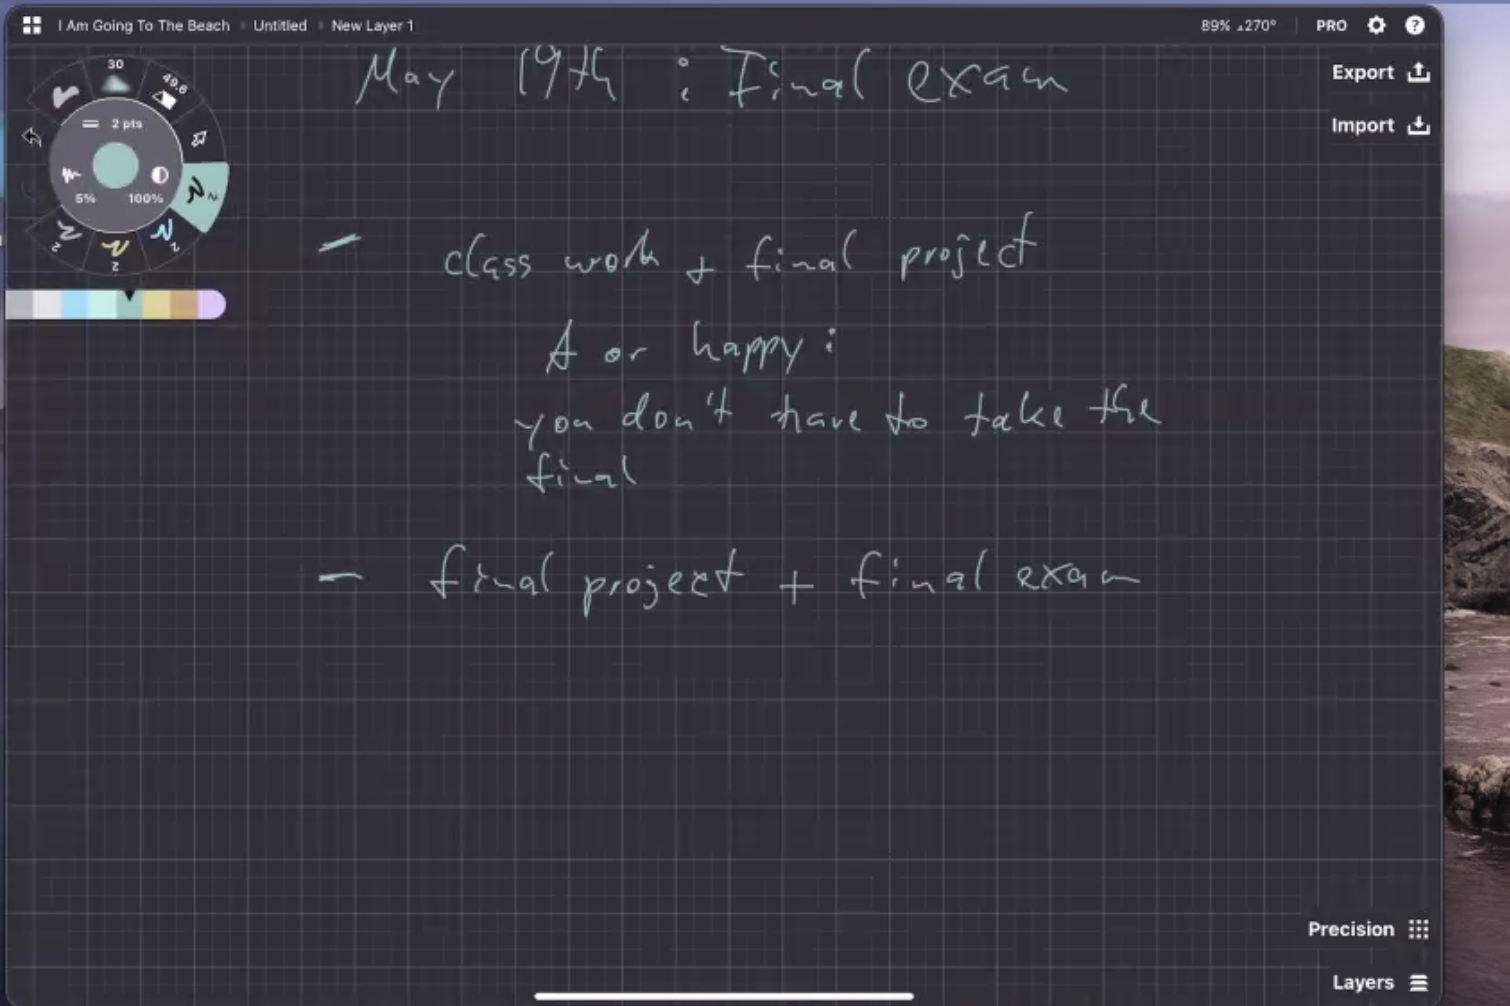 I Am Going To The Beach Untitled New Layer 1
89% 270° PRO ?
Export
Import
30
49.6
2 pts
5% 100%
2
2
2
2
May 19th : Final exam
- class work + final project
A or happy :
you don't have to take the
final
- final project + final exam
Precision
Layers